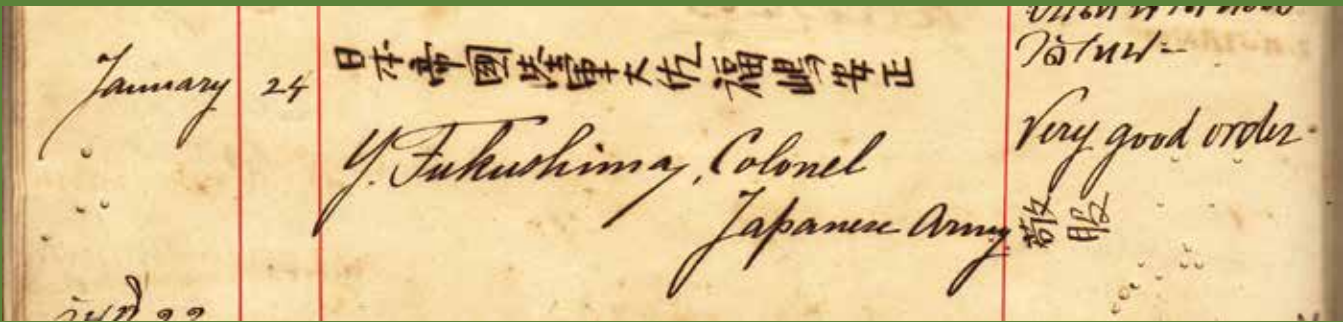 January 24 日本帝國陸軍大佐福嶋安正
Y. Fukushima, Colonel
Japanese Army
Very good order.
敬服